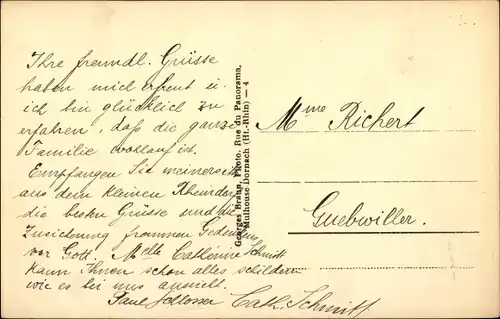 Ihre freundl. Grüsse
haben mich erfreut u.
ich bin glücklich zu
erfahren, daß die ganze
Familie wohlauf ist.
Empfangen Sie meinerseits
aus dem kleinen
die besten Grüsse und die
Zusicherung frommen Gedenkens
vor Gott. Melle Cathérine Schmitt
kann Ihnen schon alles schildern
wie es bei uns aussieht.
Paul Schlosser Cath. Schmitt
Georges Braun, Photo. Rue du Panorama,
Mulhouse Dornach (Ht.-Rhin) — 4
Mme Richert
Guebwiller.